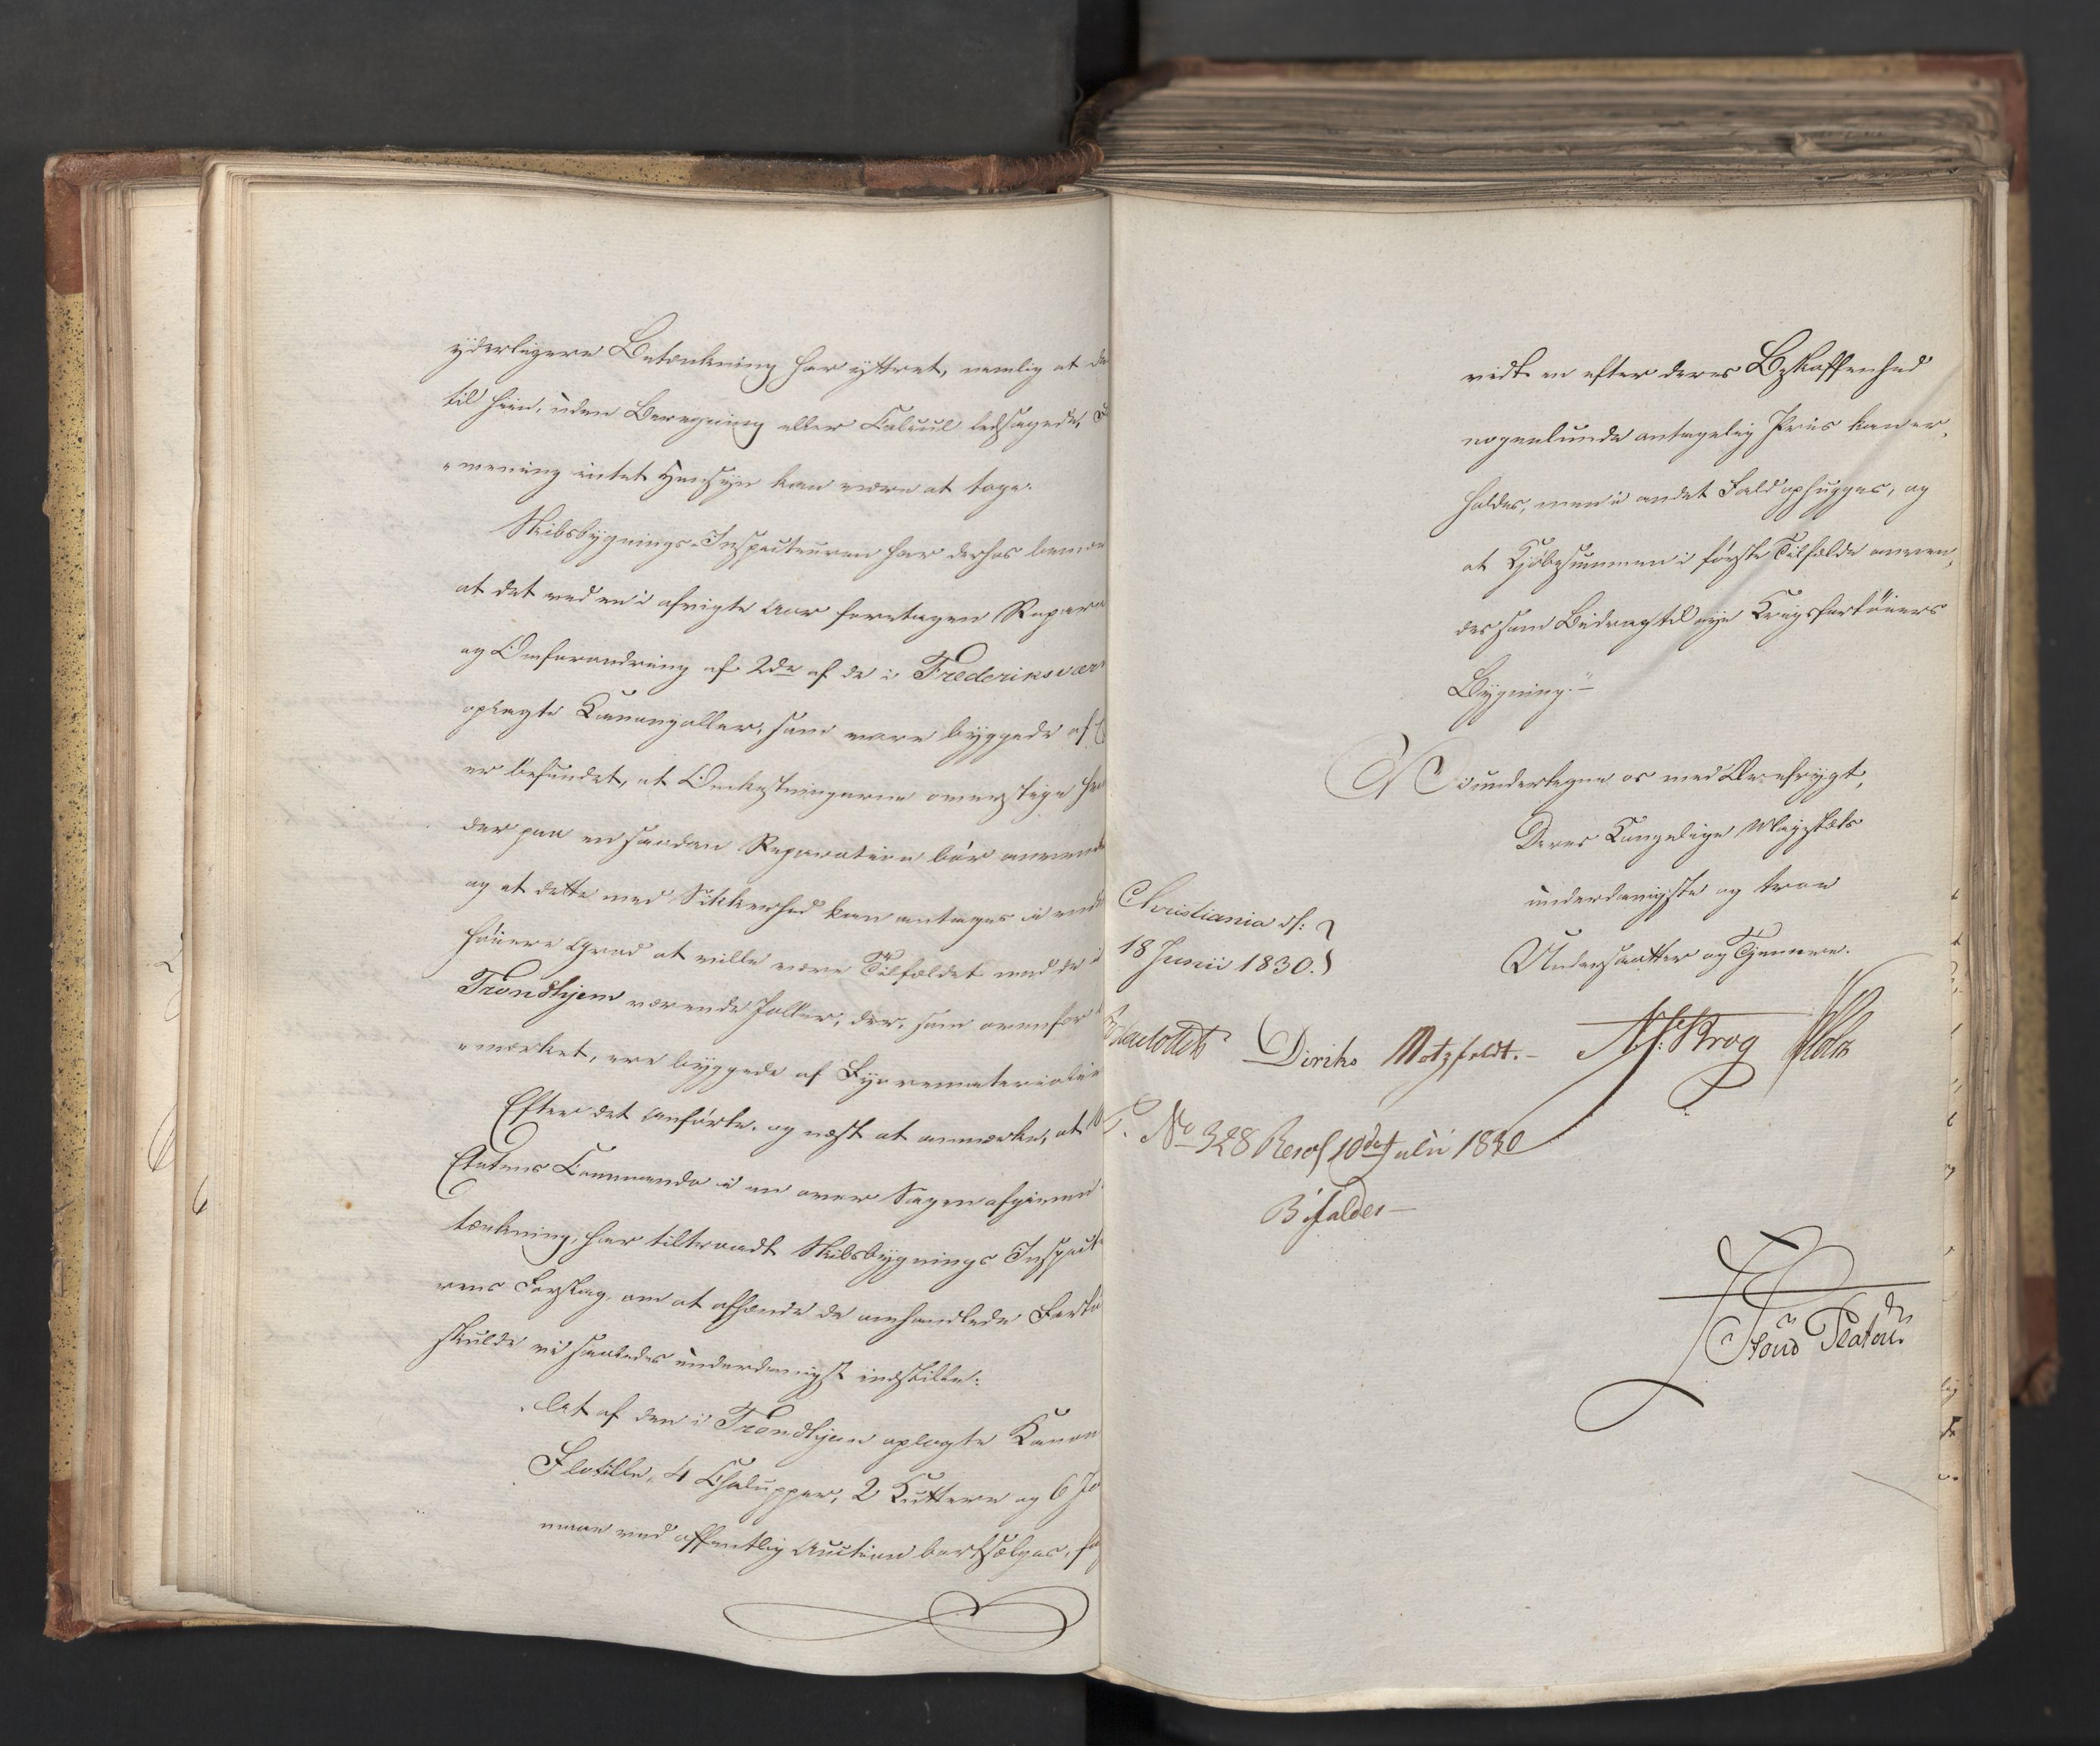 yderligere Betænkning har yttret, nemlig at de
til hiin, uden Beregning eller Calcul ledsagede,
"mening intet Hensyn kan være at tage.
Skibsbygnings-Inspecteuren har derhos bemær
at det ved en i afvigte Aar foretagen Repara
og Omforandring af 2de af de i Frederiksværn
oplagte Kanonjoller, som vare byggede af
er befundet, at Omkostningerne overstige hva
der paa en saadan Reparation bør anvende
og at dette med Sikkerhed kan antages i end
høiere Grad at ville være Tilfældet med de i
Trondhjem værende Joller, der, som ovenfor
"mærket, ere byggede af Fyrrematerialie
Efter det Anførte, og næst at anmærke, at
Etatens Commando i en over Sagen afgiven
tænkning, har tiltraadt Skibsbygnings Inspect
rens Forslag, om at afhænde de omhandlede Fartø
skulde vi saaledes underdanigst indstille:
"At af den i Trondhjem oplagte Kanon
Flotille, 4 Chalupper, 2 Kuttere og 6 Jo
maae ved offentlig Auction bortsælges, for
vidt en efter deres Beskaffenhed
nogenlunde antagelig Priis kan er-
holdes, men i andet Fald ophugges, og
at Kjøbesummen i første Tilfælde anven-
des som Bidrag til nye Krigsfartøiers
Bygning."
Vi undertegne os med Ærefrygt,
Deres Kongelige Majestæts
underdanigste og troe
Undersaatter og Tjenere.
Christiania d:
18 Junii 1830.
Diriks Motzfeldt. Krog Holst
No 328 Resol 10de Julii 1830
Bifaldes